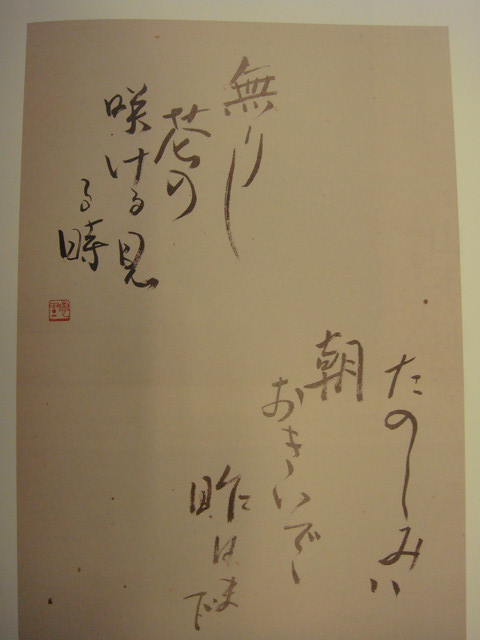 たのしみハ
朝
おきいでゝ
昨日ま
で
無りし
花の
咲ける見
る時